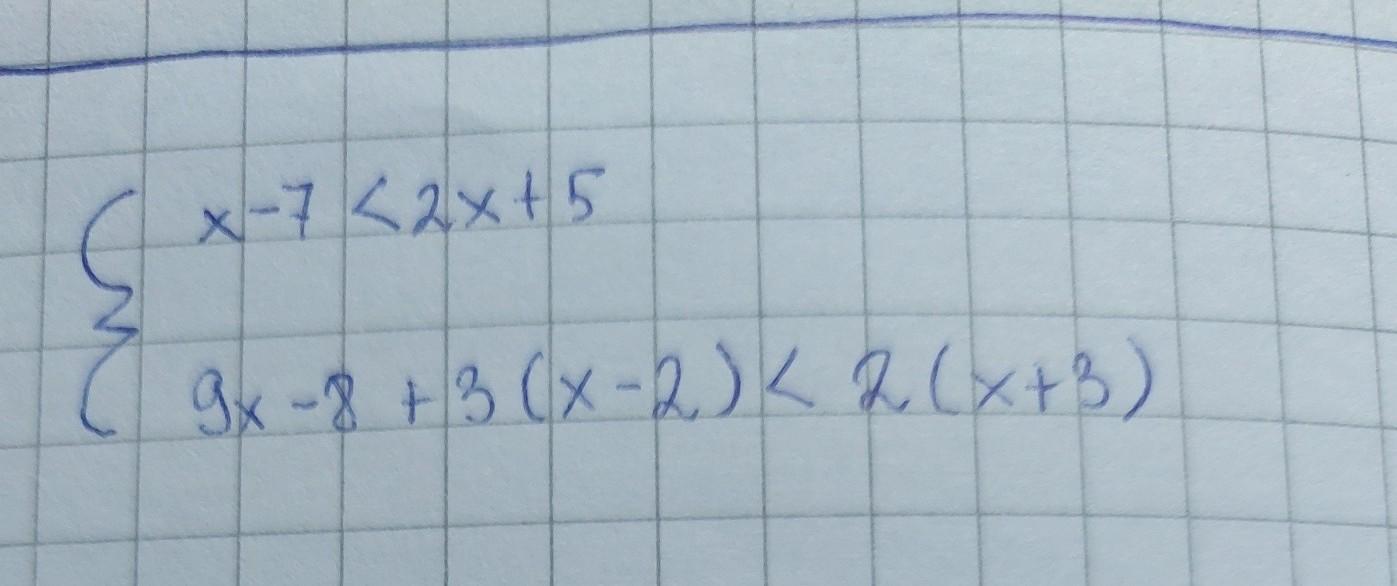 x-7<2x+5
9x-8+3(x-2)<2(x+3)